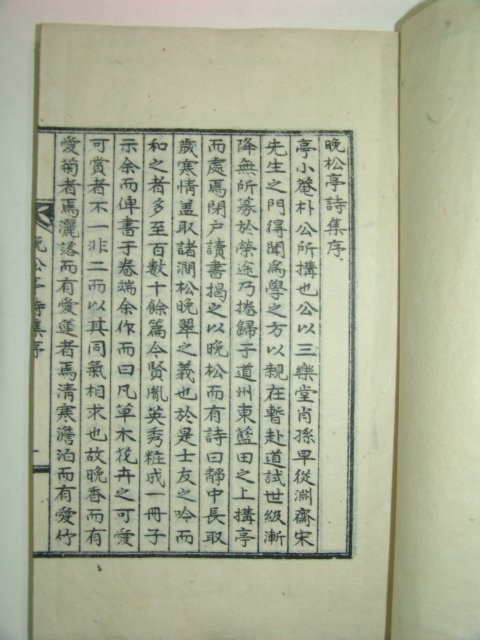 晩松亭詩集序
亭小菴朴公所搆也公以三樂堂肖孫早從淵齋宋
先生之門得聞爲學之方以親在暫赴道試世級漸
降無所豖於榮途乃捲歸于道州東藍田之上搆亭
而處焉閉戶讀書揭之以晩松而有詩曰靜中長取
歲寒情盖取諸澗松晩翠之義也於是士友之吟而
和之者多至百數十餘篇今賢胤英秀粧成一冊子
示余而俾書于卷端余作而曰凡草木花卉之可愛
可賞者不一非二而以其同氣相求也故晩香而有
愛菊者焉灑落而有愛蓮者焉清寒澹泊而有愛竹
晩松亭詩集序
一